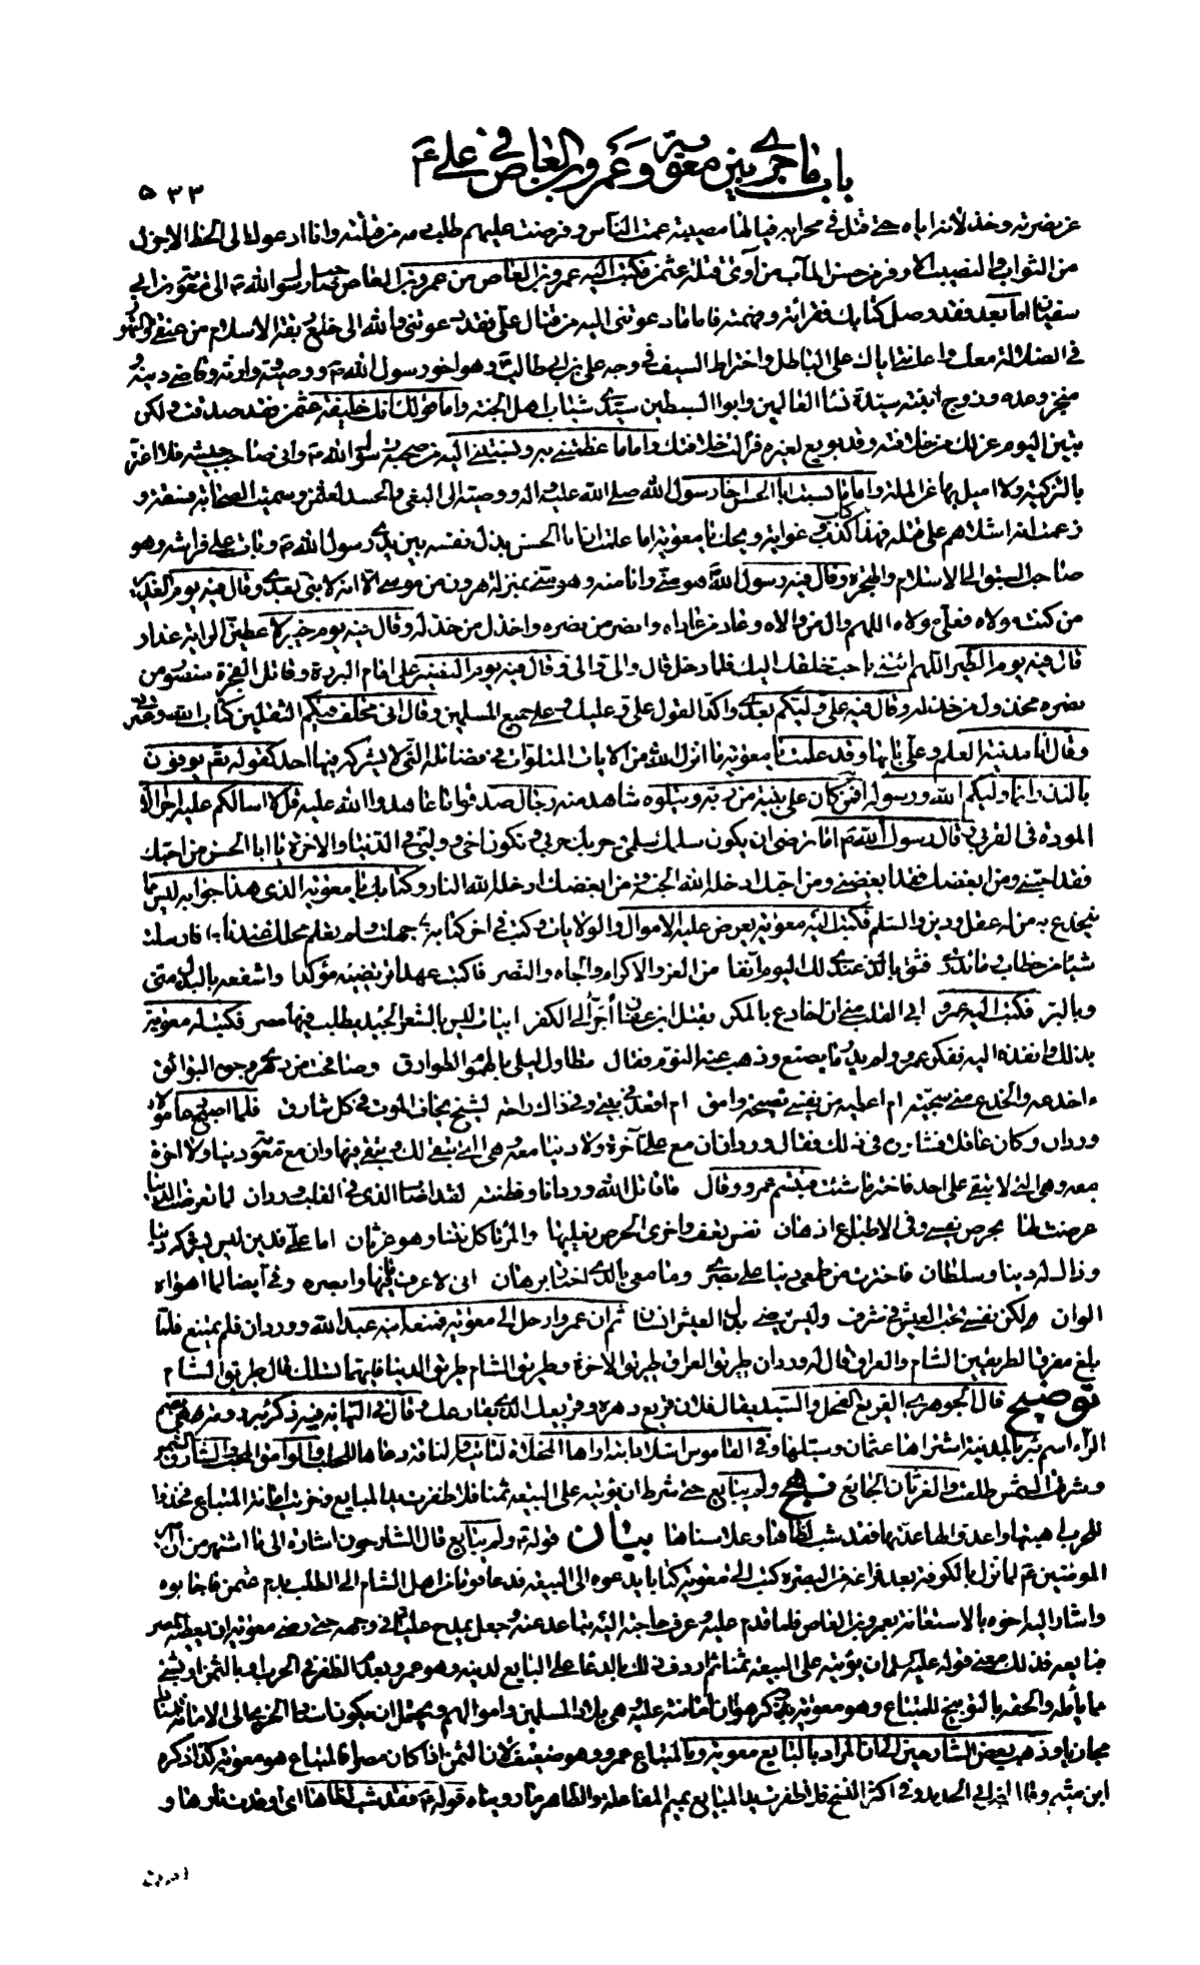 باب ما جرى بين معوية وعمرو بن العاص في علي ع
٥٣٣
عن نصرته وخذلانه اياه حتى قتل في محرابه فيالها مصيبة عمت الناس وفرضت عليهم طلب دمه من قتلته وانا ادعوك الى الحظ الاجزل
من الثواب والنصيب الاوفر من حسن المآب من آوى قتلة عثمن فكتب اليه عمرو بن العاص من عمرو بن العاص صاحب رسول الله ص الى معوية بن ابي
سفين اما بعد فقد وصل كتابك فقرأته وفهمته فاما ما دعوتني اليه من قتال علي فقد دعوتني والله الى خلع ربقة الاسلام من عنقي والتهور
في الضلالة معك واعانتي اياك على الباطل واختراط السيف في وجه علي بن ابي طالب وهو اخو رسول الله ص ووصيه ووارثه وقاضي دينه و
منجز وعده وزوج ابنته سيدة نساء العالمين وابو السبطين سيدي شباب اهل الجنة واما قولك انك خليفة عثمن فقد صدقت ولكن
تبين اليوم عزلك من خلافته وقد بويع لغيره فزالت خلافتك واما ما عظمتني به ونسبتني اليه من صحبة رسول الله ص واني صاحب جيشه فلا اغتر
بالتزكية ولا اميل بها عن الملة واما ما نسبت ابا الحسن اخا رسول الله صلى الله عليه واله ووصيه الى البغي والحسد لعثمن وسميت الصحابة فسقة و
زعمت انه اشلاهم على قتله فهذا كذب وغواية ويحك يا معوية اما علمت ان ابا الحسن بذل نفسه بين يدي رسول الله ص وبات على فراشه وهو
صاحب السبق الى الاسلام والهجرة وقال فيه رسول الله هو مني وانا منه وهو مني بمنزلة هرون من موسى الا انه لا نبي بعدي وقال فيه يوم الغدير
من كنت مولاه فعلي مولاه اللهم وال من والاه وعاد من عاداه وانصر من نصره واخذل من خذله وقال فيه يوم خيبر لاعطين الراية غدا و
قال فيه يوم الطير اللهم ائتني باحب خلقك اليك فلما دخل قال والي والي وقال فيه يوم النضير علي امام البررة وقاتل الفجرة منصور من
نصره مخذول من خذله وقال فيه علي وليكم بعدي واكد القول علي وعليك وعلى جميع المسلمين وقال اني مخلف فيكم الثقلين كتاب الله وعترتي
وقال انا مدينة العلم وعلي بابها وقد علمت يا معوية ما انزل الله من الايات المتلوات في فضائله التي لا يشركه فيها احد كقوله تعم يوفون
بالنذر انما وليكم الله ورسوله افمن كان على بينة من ربه ويتلوه شاهد منه رجال صدقوا ما عاهدوا الله عليه قل لا اسالكم عليه اجرا الا
المودة في القربى وقال رسول الله ص اما ترضى ان يكون سلمك سلمي وحربك حربي وتكون اخي ووليي في الدنيا والاخرة يا ابا الحسن من احبك
فقد احبني ومن ابغضك فقد ابغضني ومن احبك ادخله الله الجنة ومن ابغضك ادخله الله النار وكتابك يا معوية الذي هذا جوابه ليس مما
ينخدع به من له عقل ودين والسلم فكتب اليه معوية يعرض عليه الاموال والولايات وكتب في اخر كتابه جهلت ولم تعلم محلك عندنا فارسلت
شيئا من خطاب وما تدري فثق بالذي عندي لك اليوم آنفا من العز والاكرام والجاه والنصر فاكتب عهدا ترتضيه مؤكدا واشفعه بالبذل مني
وبالبر فكتب اليه عمرو ابى القلب مني ان اخادع بالمكر بقتل ابن عفان اجر الى الكفر ابيات ليس بالشعر الجيد يطلب فيها مصر فكتب له معوية
بذلك وانفذه اليه ففكر عمرو ولم يدر ما يصنع وذهب عنه النوم فقال تطاول ليلي بالهموم الطوارق وصافحت من دهري وجوه البوائق
ءاخدعه والخدع مني سجية ام اعطيه من نفسي نصيحة وامق ام اقعد في بيتي وفي ذاك راحة لشيخ يخاف الموت في كل شارق فلما اصبح دعا مولاه
وردان وكان عاقلا فشاوره في ذلك فقال وردان ان مع علي آخرة ولا دنيا معه وهي التي تبقى لك وتبقى فيها وان مع معوية دنيا ولا اخرة
معه وهي التي لا تبقى على احد فاختر ما شئت فتبسم عمرو وقال يا قاتل الله وردانا وفطنته لقد اصاب الذي في القلب وردان لما تعرضت الدنيا
عرضت لها بحرص نفسي وفي الاطباع ادهان نفس تعف واخرى الحرص يغلبها والمرء ياكل نتنا وهو غرثان اما علي فدين ليس يشركه دنيا
وذاك له دنيا وسلطان فاخترت من طمعي دنيا على بصري وما معي بالذي اختار برهان اني لاعرف ما فيها وابصره وفي ايضا لما اهواه
الوان ولكن نفسي تحب العيش في شرف وليس يرضى بذل العيش انسان ثم ان عمروا رحل الى معوية فمنعه ابنه عبد الله ووردان فلم يمتنع فلما
بلغ مفرق الطريقين الشام والعراق قال له وردان طريق العراق طريق الاخرة وطريق الشام طريق الدنيا فايهما تسلك قال طريق الشام
توضيح قال الجوهري القريع الفحل والسيد يقال فلان قريع دهره وقريعك الذي يقارعك وقال في النهاية فيه ذكر بئر رومة هي بضم
الراء اسم بئر بالمدينة اشتراها عثمان وسبلها وفي القاموس اشلا دابته اراها المخلاة لتاتيه والناقة دعاها للحلب والوامق المحب والشارق الشمس
وشرقت الشمس طلعت والغرثان الجائع نهج ولم يبايع حتى شرط ان يؤتيه على البيعة ثمنا فلا ظفرت يد المبايع وخزيت امانة المبتاع فخذوا
للحرب اهبتها واعدوا لها عدتها فقد شب لظاها وعلا سناها بيان قوله ع ولم يبايع قال الشارحون اشارة الى ما اشتهر من ان امير
المومنين ع لما نزل بالكوفة بعد فراغه من البصرة كتب الى معوية كتابا يدعوه الى البيعة فدعا قوما من اهل الشام الى الطلب بدم عثمن فاجابوه
واشار اليه اخوه بالاستعانة بعمرو بن العاص فلما قدم عليه وعرف حاجته اليه تباعد عنه وجعل يمدح عليا في وجهه حتى رضي معوية ان يعطيه مصر
فبايعه فذلك معنى قوله عليه السلم ان يؤتيه على البيعة ثمنا ثم اردف ذلك بالدعاء على البايع لدينه وهو عمرو بعدم الظفر في الحرب او بالثمن او بشيء
مما يأمله والحقه بالتوبيخ للمبتاع وهو معوية بذكر هوان امانته عليه وهي بلاد المسلمين واموالهم ويحتمل ان يكون اسناد الخزي الى الامانة اسنادا
مجازيا وذهب بعض الشارحين الى ان المراد بالبايع معوية وبالمبتاع عمرو وهو ضعيف لان الثمن اذا كان مصرا فالمبتاع هو معوية كذا ذكره
ابن ميثم وقال ابن ابي الحديد وفي اكثر النسخ فلا ظفرت يد المبايع بميم المفاعلة والظاهر ما رويناه قوله ع فقد شب لظاها اي اوقدت نارها و